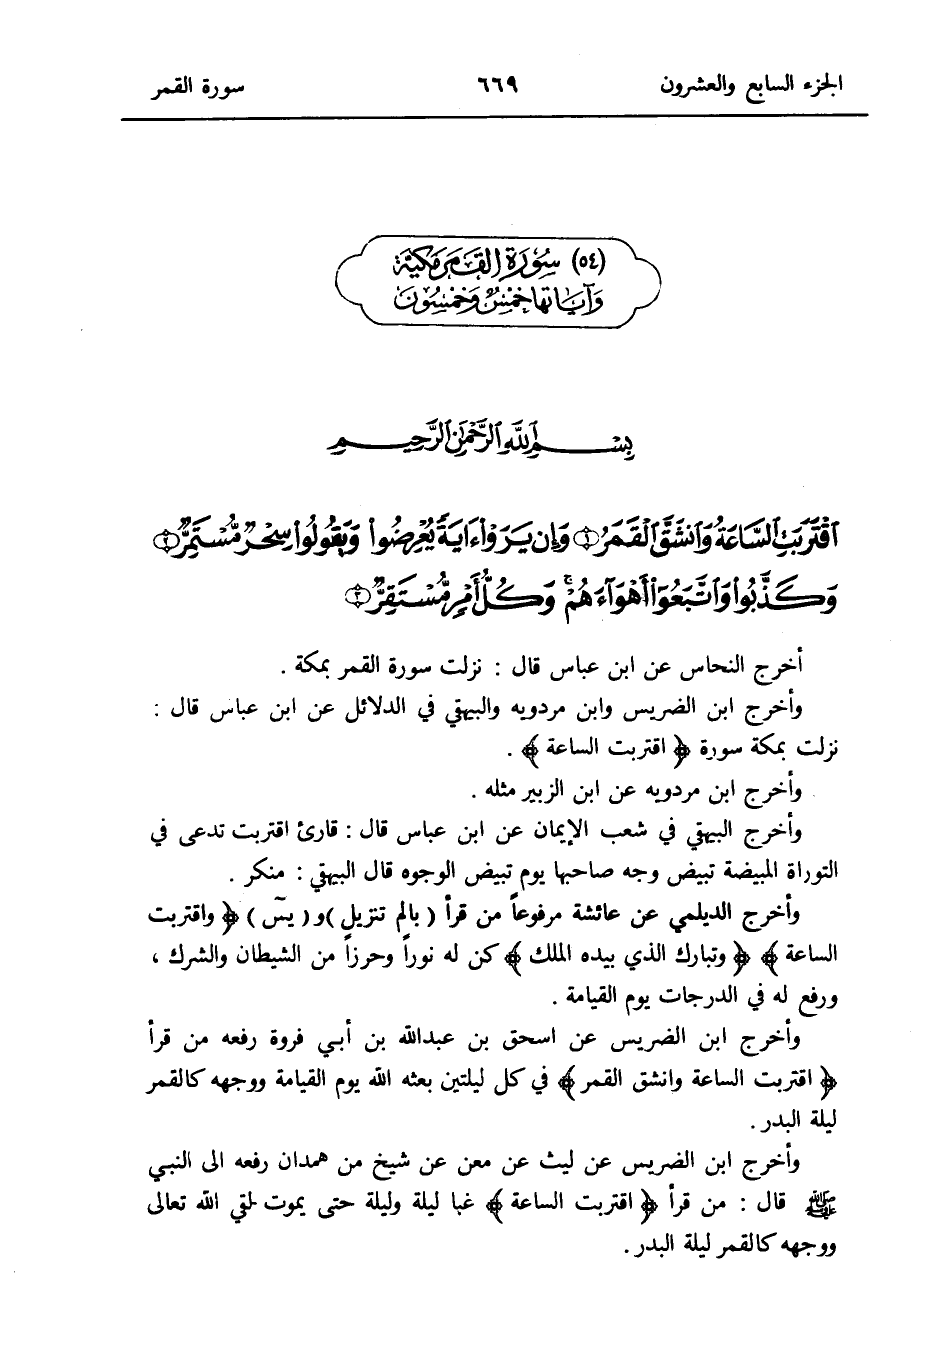 الجزء السابع والعشرون ٦٦٩ سورة القمر
(٥٤) سُورَةُ القَمَرِ مَكِيَّة
وَآيَاتُهَا خَمْسٌ وَخَمْسُونَ
بِسْمِ اللَّهِ الرَّحْمَنِ الرَّحِيمِ
ٱقۡتَرَبَتِ ٱلسَّاعَةُ وَٱنشَقَّ ٱلۡقَمَرُ ١ وَإِن يَرَوۡاْ ءَايَةٗ يُعۡرِضُواْ وَيَقُولُواْ سِحۡرٞ مُّسۡتَمِرّٞ ٢
وَكَذَّبُواْ وَٱتَّبَعُوٓاْ أَهۡوَآءَهُمۡۚ وَكُلُّ أَمۡرٖ مُّسۡتَقِرّٞ ٣
أخرج النحاس عن ابن عباس قال : نزلت سورة القمر بمكة .
وأخرج ابن الضريس وابن مردويه والبيهقي في الدلائل عن ابن عباس قال :
نزلت بمكة سورة ﴿ اقتربت الساعة ﴾ .
وأخرج ابن مردويه عن ابن الزبير مثله .
وأخرج البيهقي في شعب الإيمان عن ابن عباس قال : قارئ اقتربت تدعى في
التوراة المبيضة تبيض وجه صاحبها يوم تبيض الوجوه قال البيهقي : منكر .
وأخرج الديلمي عن عائشة مرفوعاً من قرأ ( بالم تنزيل ) و ( يسۤ ) ﴿ واقتربت
الساعة ﴾ ﴿ وتبارك الذي بيده الملك ﴾ كن له نوراً وحرزاً من الشيطان والشرك ،
ورفع له في الدرجات يوم القيامة .
وأخرج ابن الضريس عن اسحق بن عبدالله بن أبي فروة رفعه من قرأ
﴿ اقتربت الساعة وانشق القمر ﴾ في كل ليلتين بعثه الله يوم القيامة ووجهه كالقمر
ليلة البدر .
وأخرج ابن الضريس عن ليث عن معن عن شيخ من همدان رفعه الى النبي
ﷺ قال : من قرأ ﴿ اقتربت الساعة ﴾ غبا ليلة وليلة حتى يموت لقي الله تعالى
ووجهه كالقمر ليلة البدر .